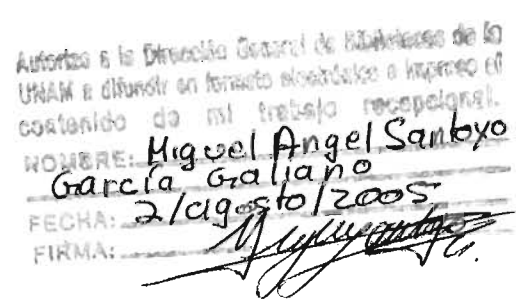 Autorizo a la Dirección General de Bibliotecas de la
UNAM a difundir en formato electrónico e impreso el
contenido de mi trabajo recepcional.
NOMBRE: Miguel Angel Santoyo
García Galiano
FECHA: 2/agosto/2005
FIRMA: